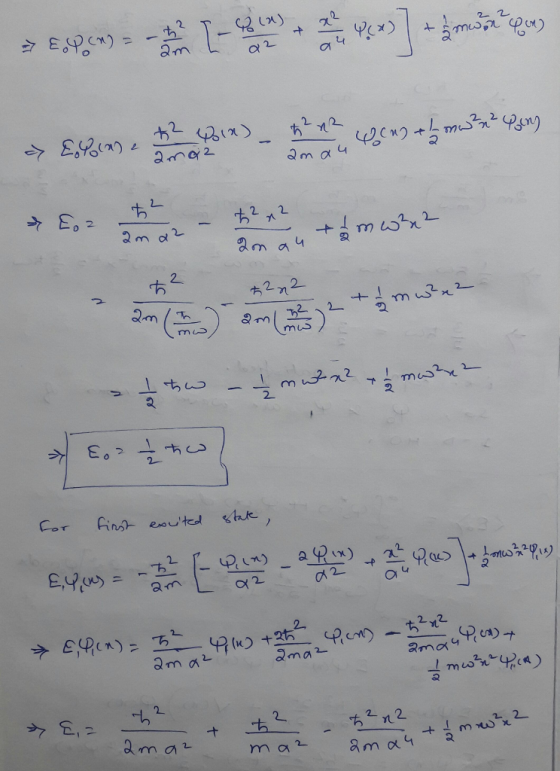 ⇒ E₀φ₀(x) = -ħ²/2m [ -φ₀(x)/α² + x²/α⁴ φ₀(x) ] + ½mω²x²φ₀(x)
⇒ E₀φ₀(x) = ħ²/2mα² φ₀(x) - ħ²x²/2mα⁴ φ₀(x) + ½mω²x²φ₀(x)
⇒ E₀ = ħ²/2mα² - ħ²x²/2mα⁴ + ½mω²x²
= ħ²/2m(ħ/mω) - ħ²x²/2m(ħ/mω)² + ½mω²x²
= ½ħω - ½mω²x² + ½mω²x²
⇒ E₀ = ½ħω
For first excited state,
E₁φ₁(x) = -ħ²/2m [ -φ₁(x)/α² - 2φ₁(x)/α² + x²/α⁴ φ₁(x) ] + ½mω²x²φ₁(x)
⇒ E₁φ₁(x) = ħ²/2mα² φ₁(x) + 2ħ²/2mα² φ₁(x) - ħ²x²/2mα⁴ φ₁(x) +
½mω²x²φ₁(x)
⇒ E₁ = ħ²/2mα² + ħ²/mα² - ħ²x²/2mα⁴ + ½mω²x²